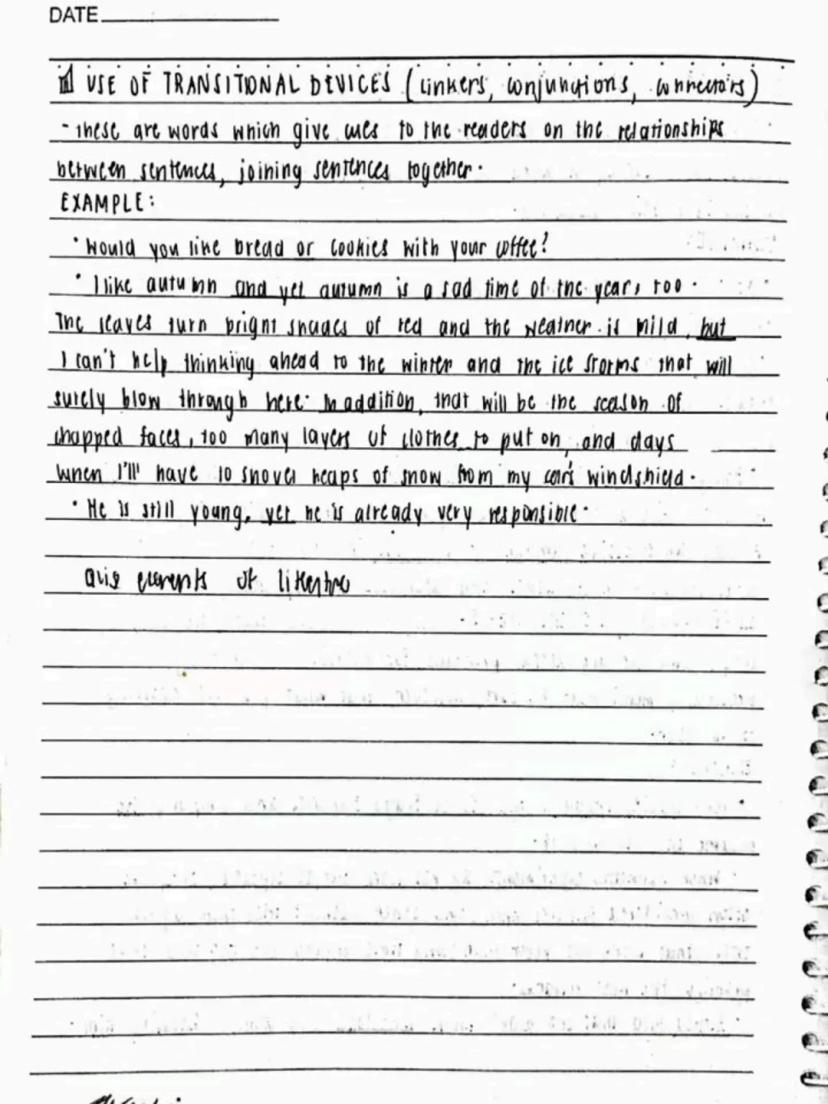 DATE
USE OF TRANSITIONAL DEVICES (linkers, conjunctions, connectors)
- These are words which give cues to the readers on the relationships
between sentences, joining sentences together.
EXAMPLE:
• Would you like bread or cookies with your coffee?
• I like autumn and yet autumn is a sad time of the year, too.
The leaves turn bright shades of red and the weather is mild, but
I can't help thinking ahead to the winter and the ice storms that will
surely blow through here. In addition, that will be the season of
chapped faces, too many layers of clothes to put on, and days
when I'll have to shovel heaps of snow from my car's windshield.
• He is still young, yet he is already very responsible.
elements of